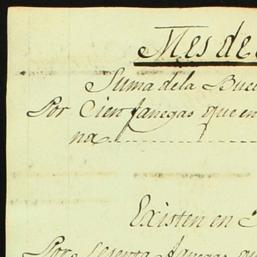 Mes de
Suma dela Buel
Por Cien fanegas que en
na
Existen en
Por Sesenta fanegas qu